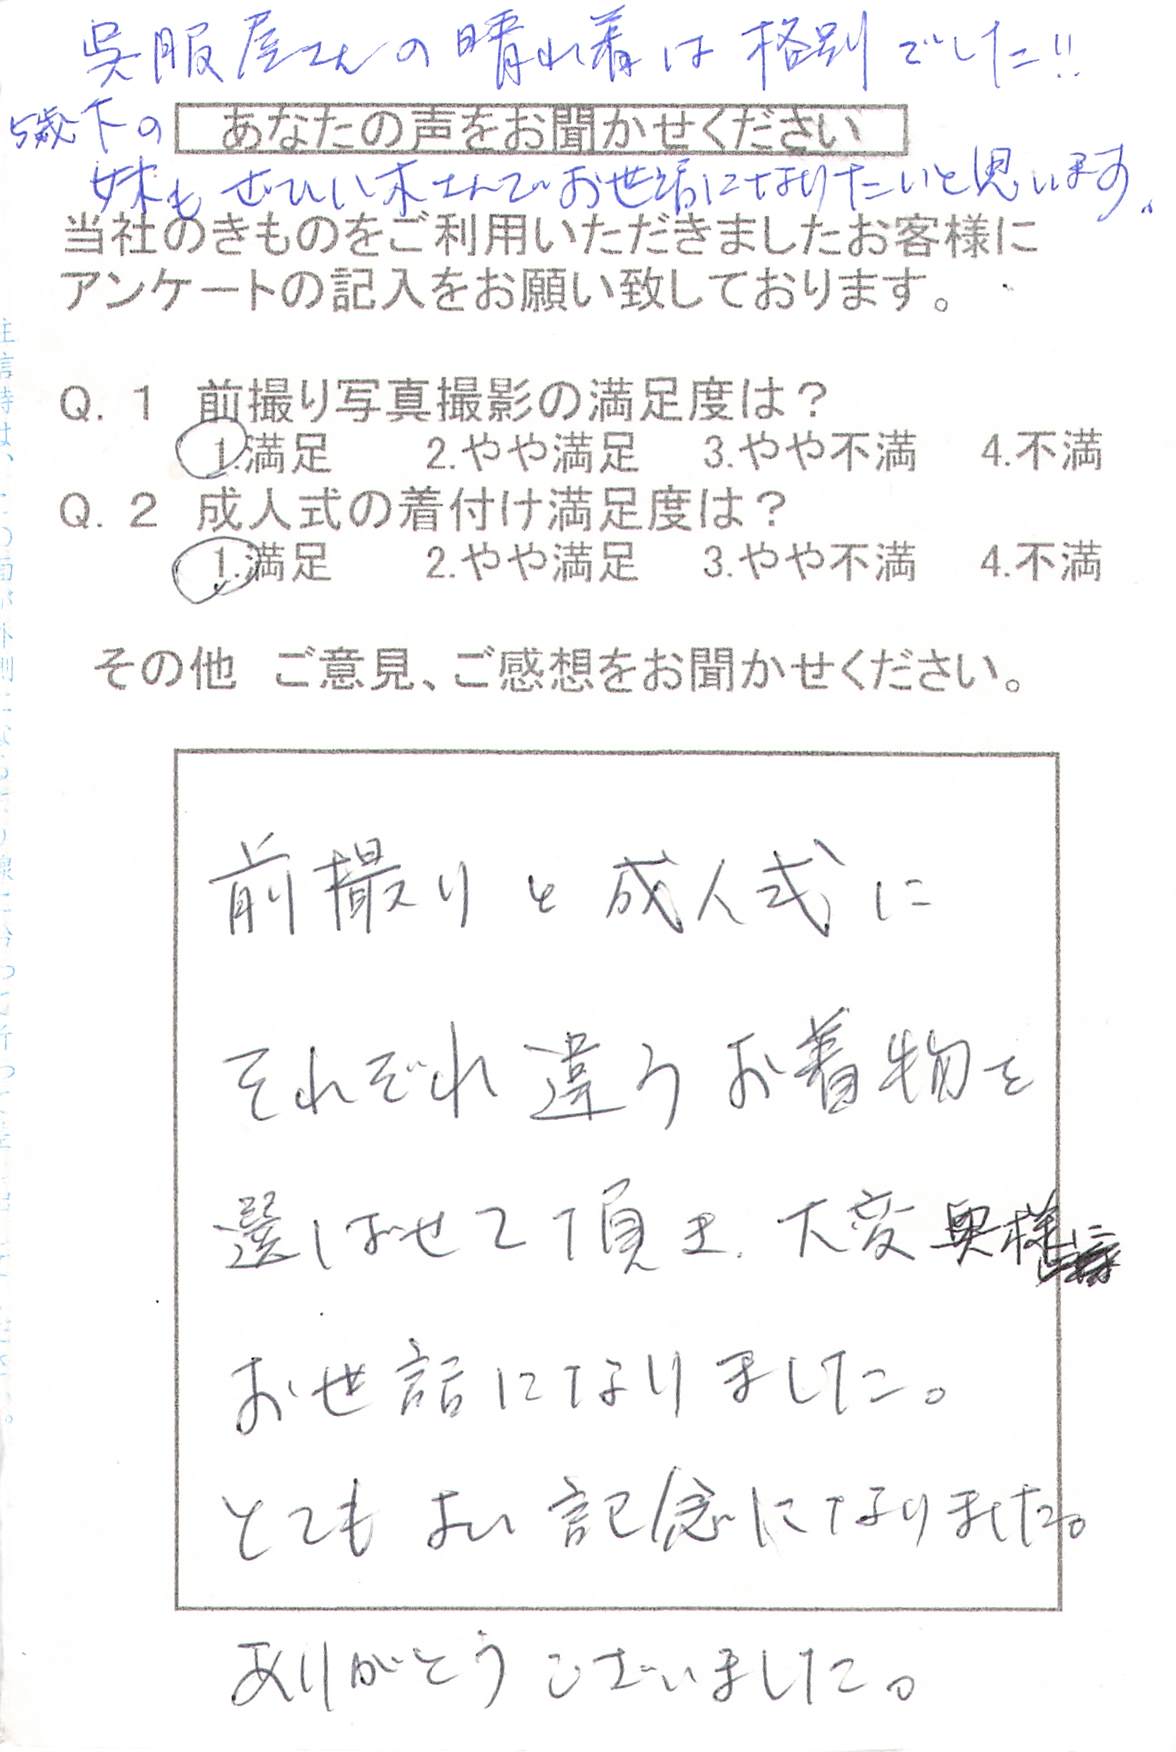 呉服屋さんの晴れ着は格別でした!!
5歳下の
あなたの声をお聞かせください
妹もぜひいホさんでお世話になりたいと思います。
当社のきものをご利用いただきましたお客様に
アンケートの記入をお願い致しております。
Q.1 前撮り写真撮影の満足度は?
1.満足 2.やや満足 3.やや不満 4.不満
Q.2 成人式の着付け満足度は?
1.満足 2.やや満足 3.やや不満 4.不満
その他 ご意見、ご感想をお聞かせください。
前撮りと成人式に
それぞれ違うお着物を
選ばせて頂き、大変奥様に
お世話になりました。
とてもよい記念になりました。
ありがとうございました。